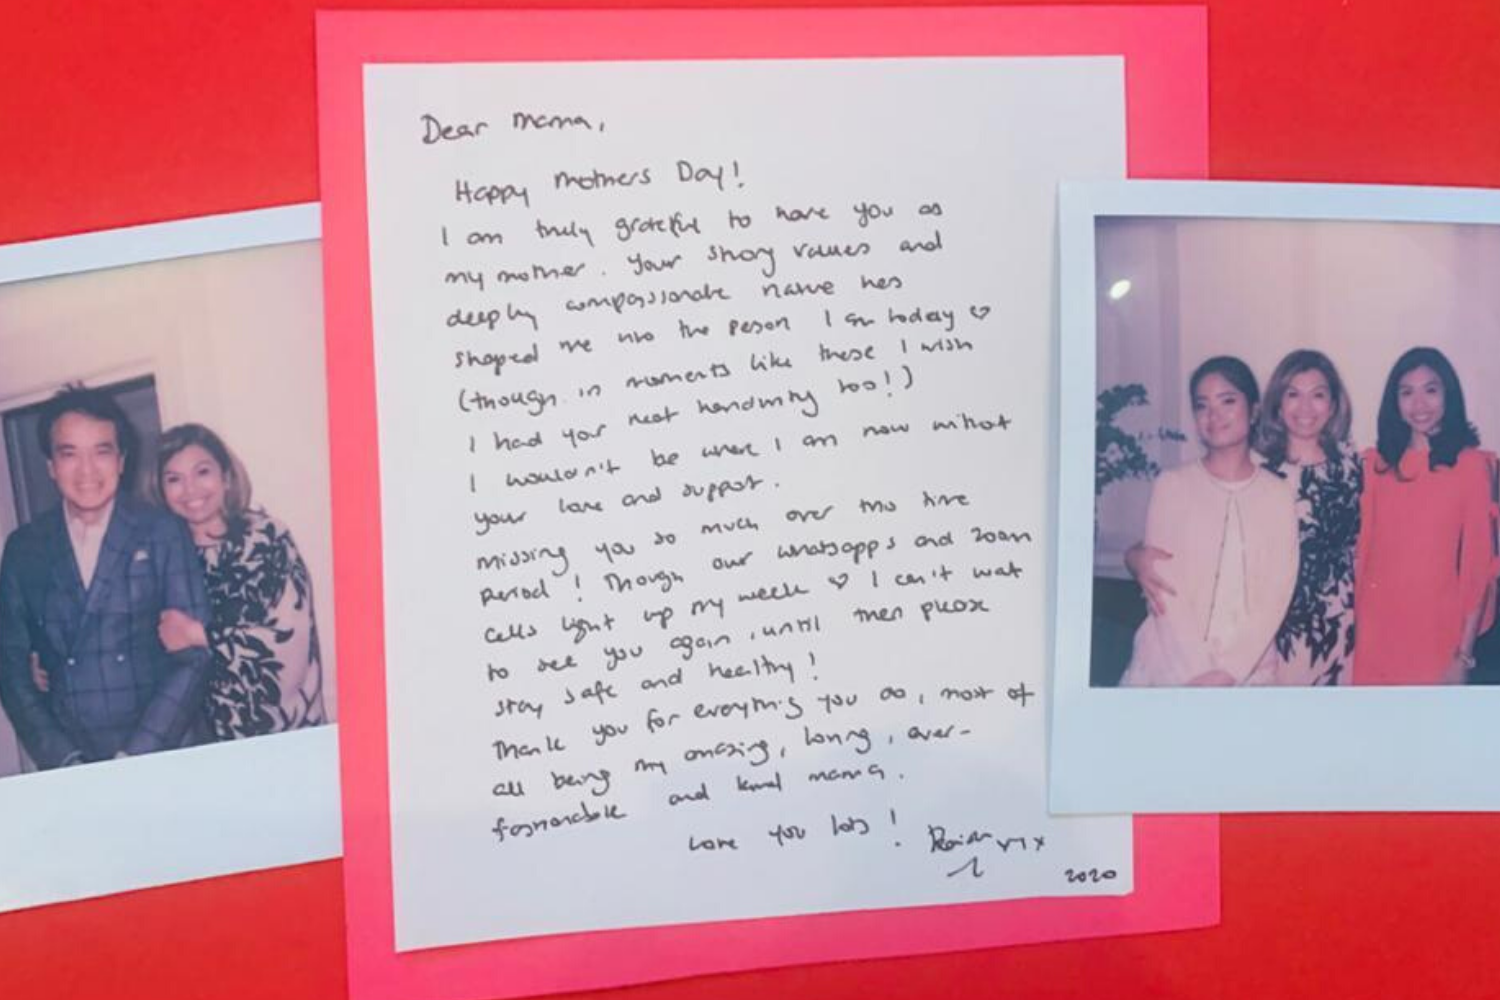 Dear mama,
Happy Mothers Day!
I am truly grateful to have you as
my mother. Your strong values and
deeply compassionate nature has
shaped me into the person I am today ♡
(though in moments like these I wish
I had your neat handwriting too!)
I wouldn't be where I am now without
your love and support.
Missing you so much over this time
period! Though our whatsapps and zoom
calls light up my week ♡ I can't wait
to see you again, until then please
stay safe and healthy!
Thank you for everything you do, most of
all being my amazing, loving, over-
fashionable and kind mama.
Love you lots!
2020